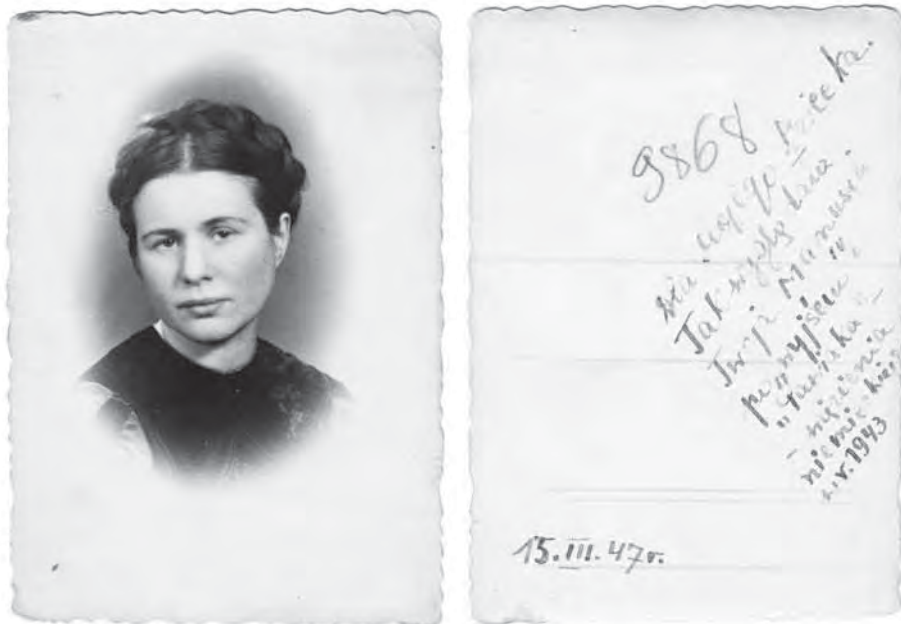 9868
dla mojego dziecka.
Tak wyglądała
Twoja Mamusia
po wyjściu z
"Pawiaka" –
– więzienia
niemieckiego
1943
15.III.47r.